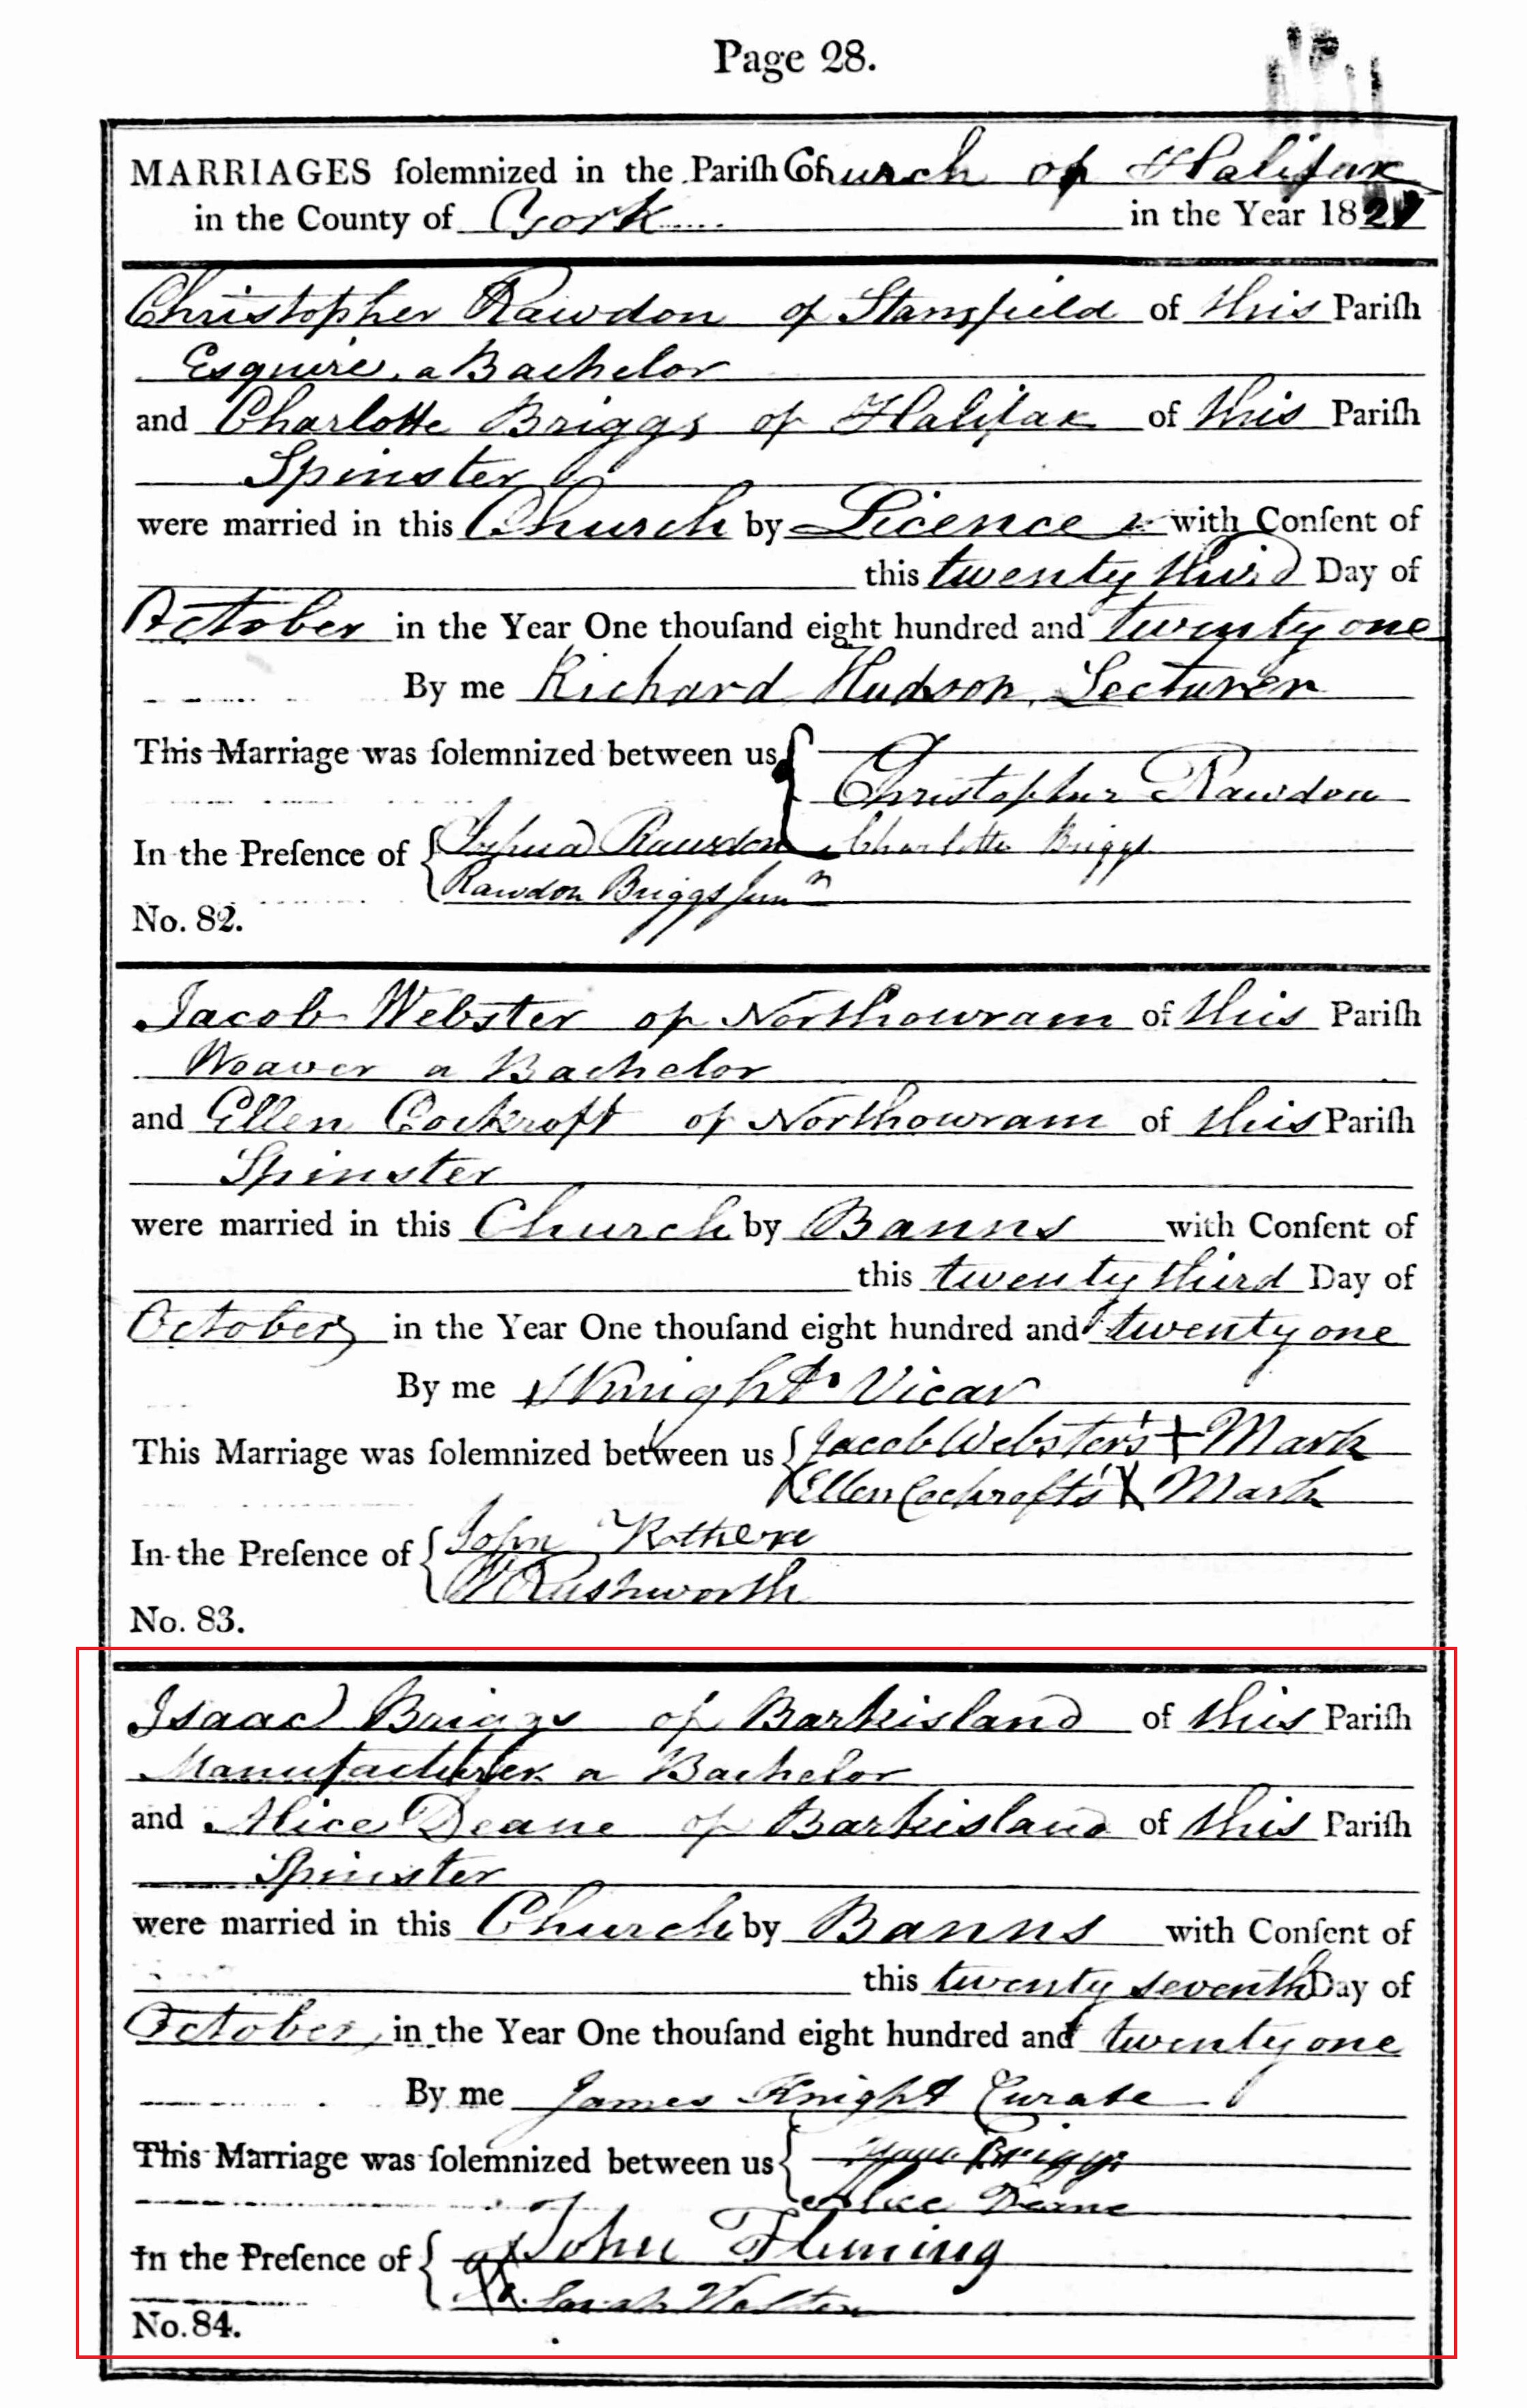 Page 28.
MARRIAGES ſolemnized in the Pariſh Church of Halifax
in the County of York in the Year 1821
Christopher Rawdon of Stansfield of this Pariſh
Esquire, a Bachelor
and Charlotte Briggs of Halifax of this Pariſh
Spinster
were married in this Church by Licence with Conſent of
this twenty third Day of
October in the Year One thouſand eight hundred and twenty one
By me Richard Hudson, Lecturer
This Marriage was ſolemnized between us
Christopher Rawdon
Charlotte Briggs
In the Preſence of Joshua Rawdon
Rawdon Briggs Junr
No. 82.
Jacob Webster of Northowram of this Pariſh
Weaver a Bachelor
and Ellen Cockroft of Northowram of this Pariſh
Spinster
were married in this Church by Banns with Conſent of
this twenty third Day of
October in the Year One thouſand eight hundred and twenty one
By me Knight Vicar
This Marriage was ſolemnized between us Jacob Webster's + Mark
Ellen Cockroft's X Mark
In the Preſence of John
W Rushworth
No. 83.
Isaac Briggs of Barkisland of this Pariſh
Manufacturer a Bachelor
and Alice Deane of Barkisland of this Pariſh
Spinster
were married in this Church by Banns with Conſent of
this twenty seventh Day of
October in the Year One thouſand eight hundred and twenty one
By me James Knight Curate
This Marriage was ſolemnized between us Isaac Briggs
Alice Deane
In the Preſence of John Fleming
Sarah
No. 84.